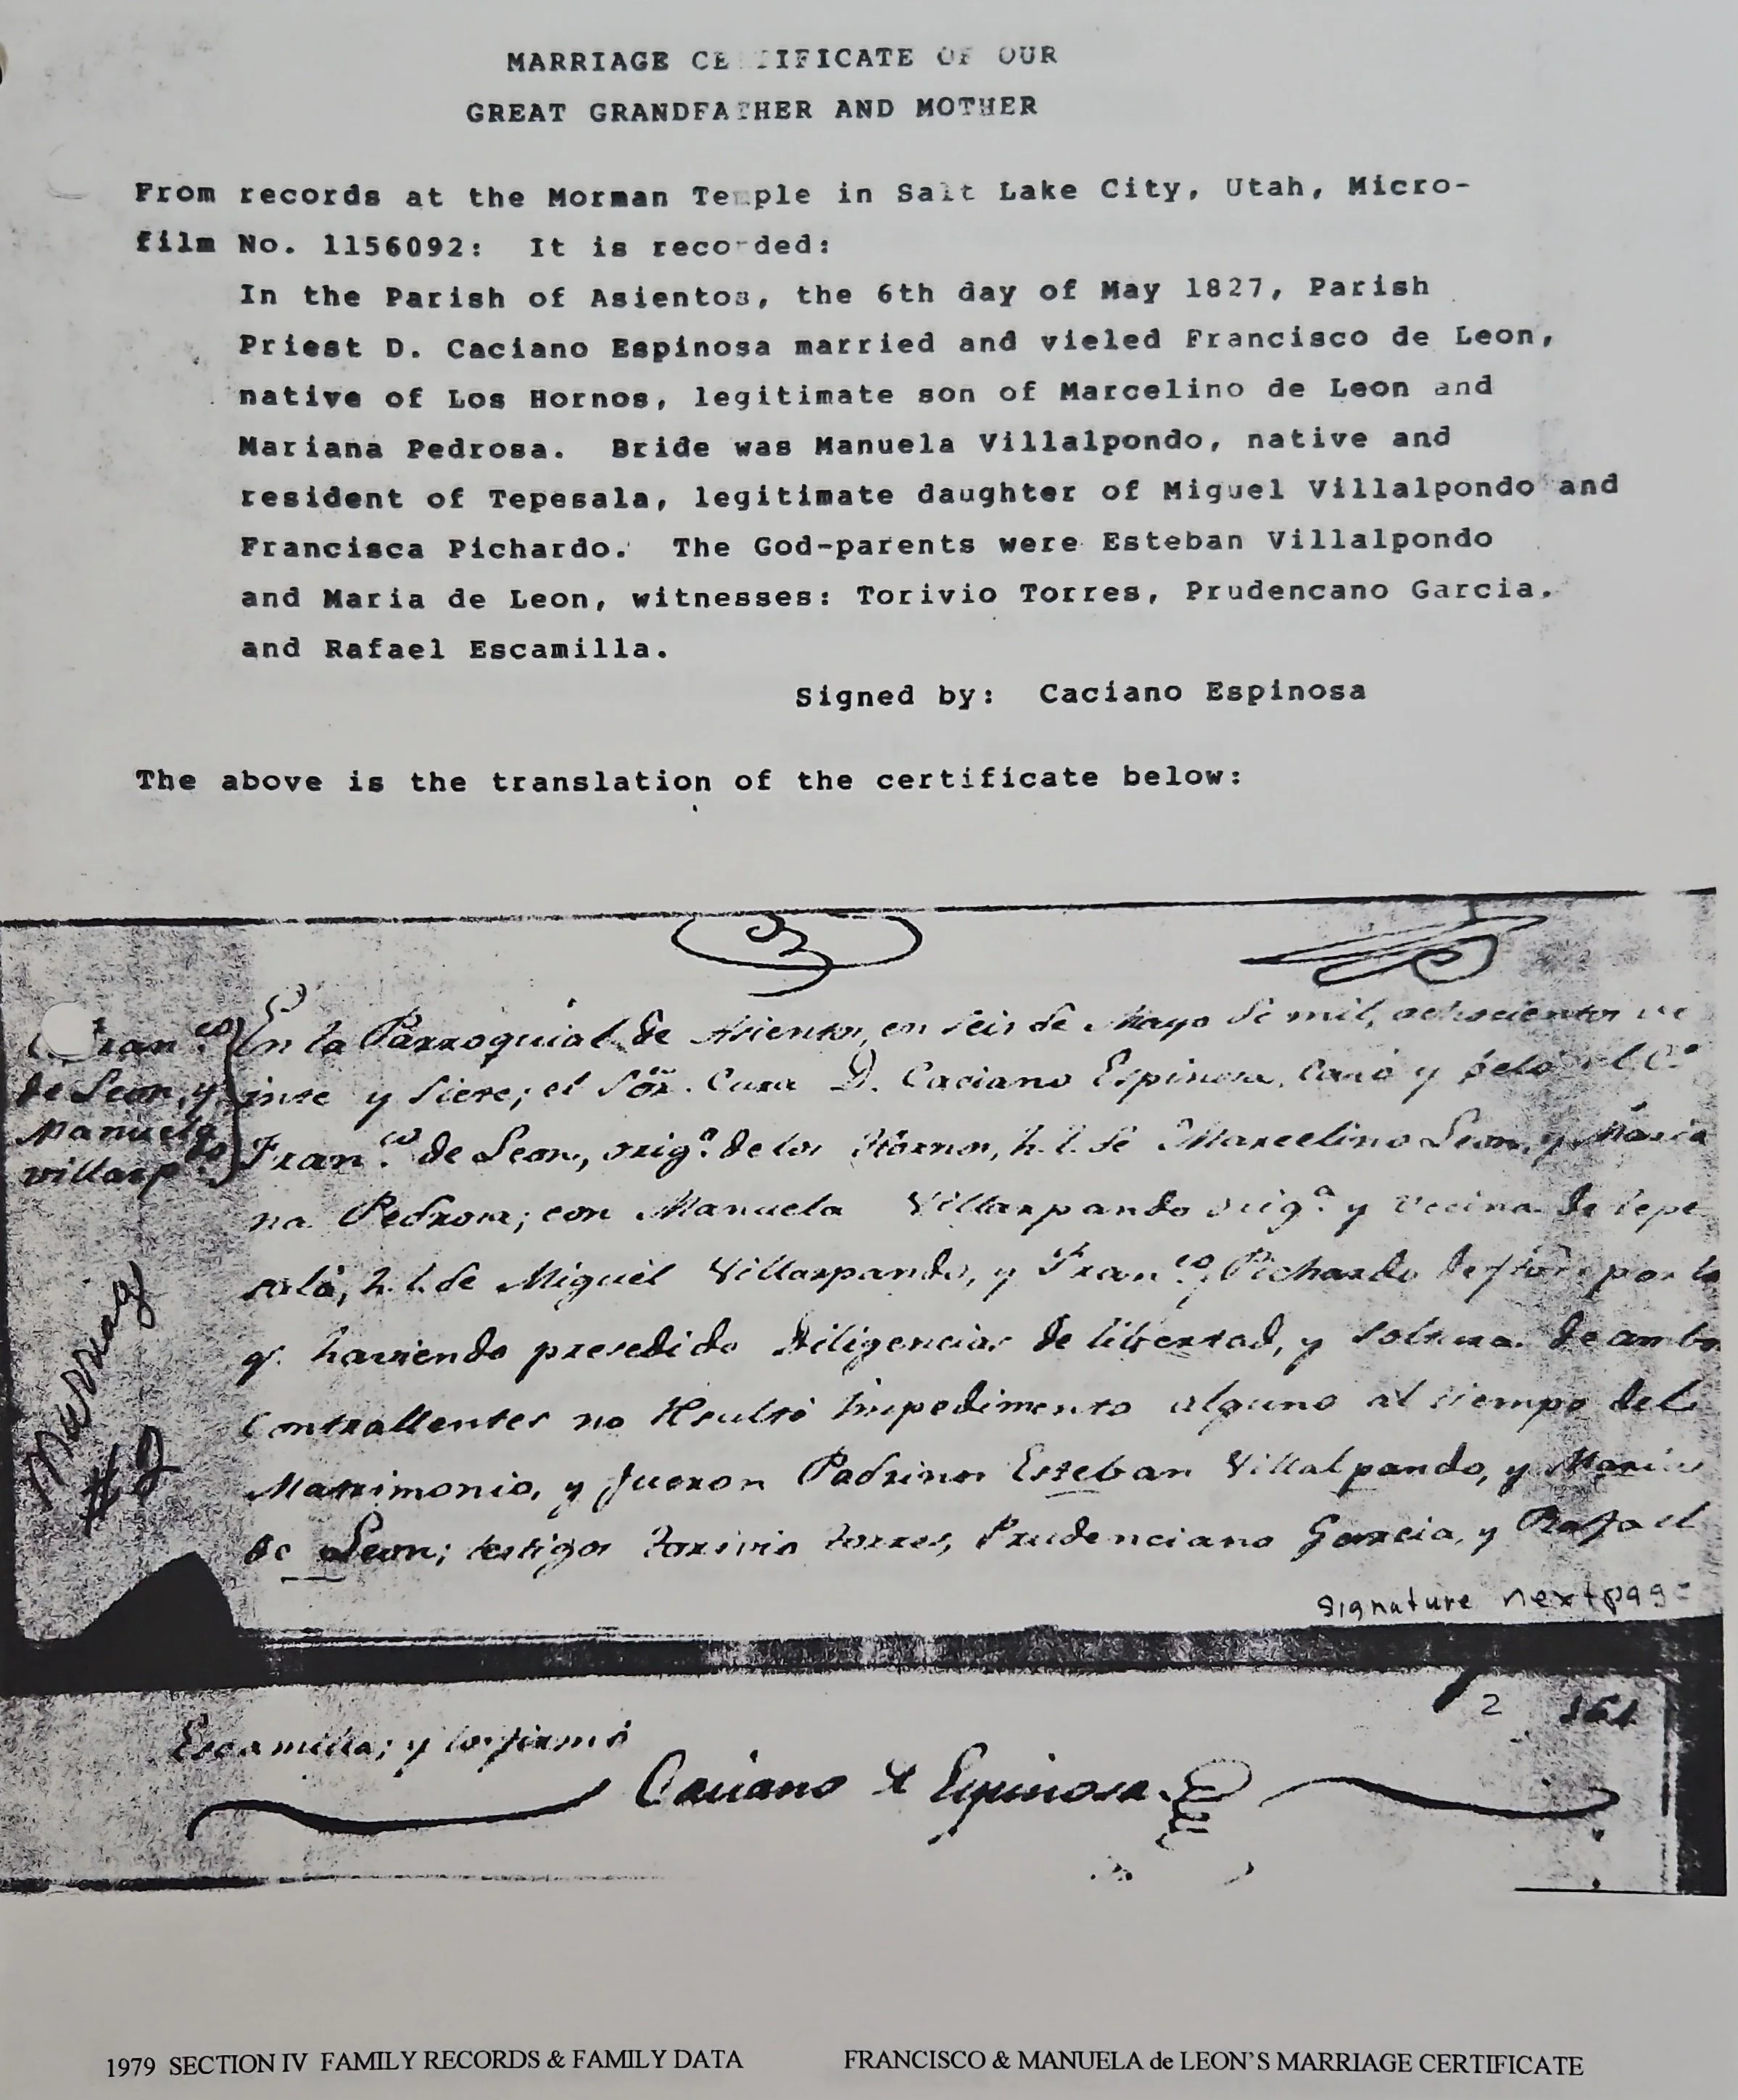 MARRIAGE CERTIFICATE OF OUR
GREAT GRANDFATHER AND MOTHER
From records at the Morman Temple in Salt Lake City, Utah, Micro-
film No. 1156092: It is recorded:
In the Parish of Asientos, the 6th day of May 1827, Parish
Priest D. Caciano Espinosa married and vieled Francisco de Leon,
native of Los Hornos, legitimate son of Marcelino de Leon and
Mariana Pedrosa. Bride was Manuela Villalpondo, native and
resident of Tepesala, legitimate daughter of Miguel Villalpondo and
Francisca Pichardo. The God-parents were Esteban Villalpondo
and Maria de Leon, witnesses: Torivio Torres, Prudencano Garcia.
and Rafael Escamilla.
Signed by: Caciano Espinosa
The above is the translation of the certificate below:
Fran.co
de Leon, y
Manuela
Villarpdo
Marriag
#2
En la Parroquial de Asientos, en seis de Mayo de mil, ochocientos ve
inte y siete; el Sõr. Cura D. Caciano Espinosa, casó y beló al C.o
Fran.co de Leon, orig.o de los Hornos, h. l. de Marcelino Leon, y Maria
na Pedrosa; con Manuela Villarpando orig.a y vecina de Tepe
salá, h. l. de Miguel Villarpando, y Fran.ca Pichardo por lo
q. haviendo presedido Diligencias de libertad, y soltura de ambo
Contrallentes no Resultó Impedimento alguno al tiempo del
Matrimonio, y fueron Padrinos Esteban Villalpando, y Maria
de Leon; testigos Torivio torres, Prudenciano Garcia, y Rafael
Signature next page
2 161
Escamilla; y lo firmó
Caciano Espinosa
1979 SECTION IV FAMILY RECORDS & FAMILY DATA FRANCISCO & MANUELA de LEON'S MARRIAGE CERTIFICATE